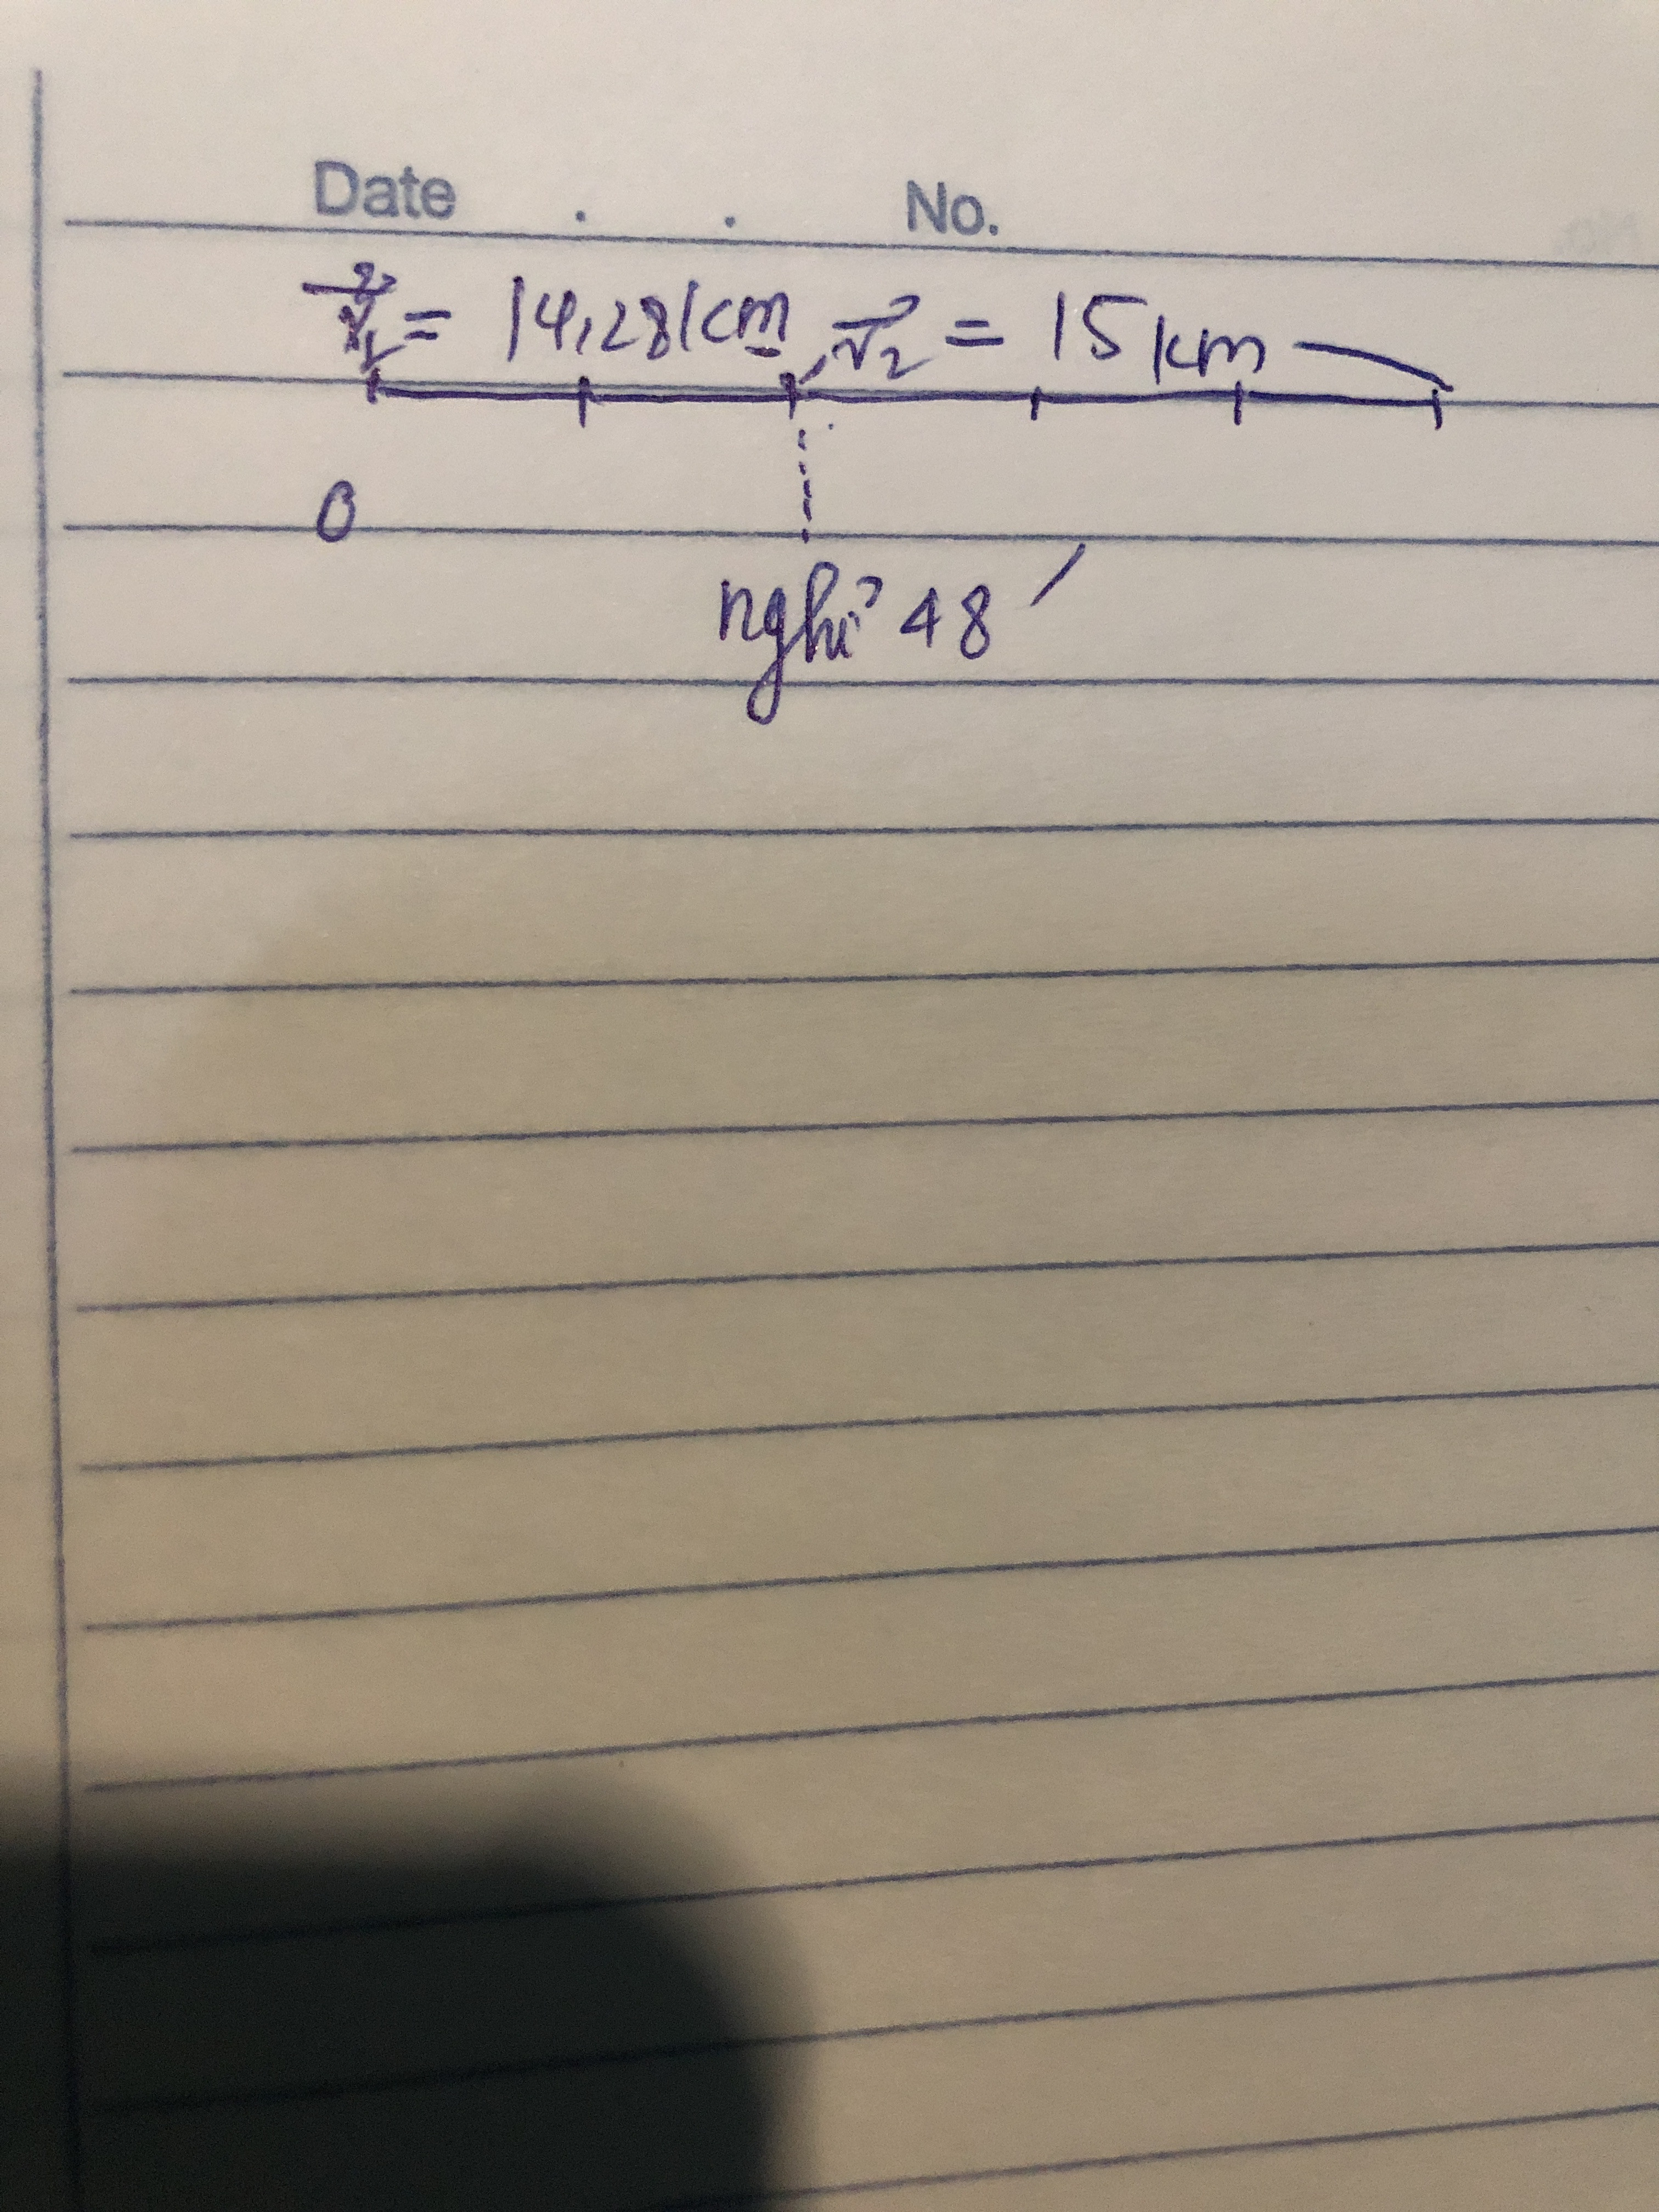 Date . . No.
v₁ = 14,28km, v₂ = 15km
0
nghỉ 48'